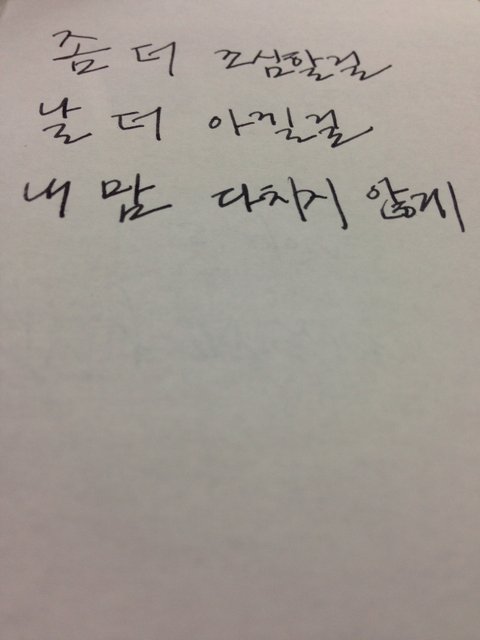 좀 더 조심할걸
날 더 아낄걸
내 맘 다치지 않게